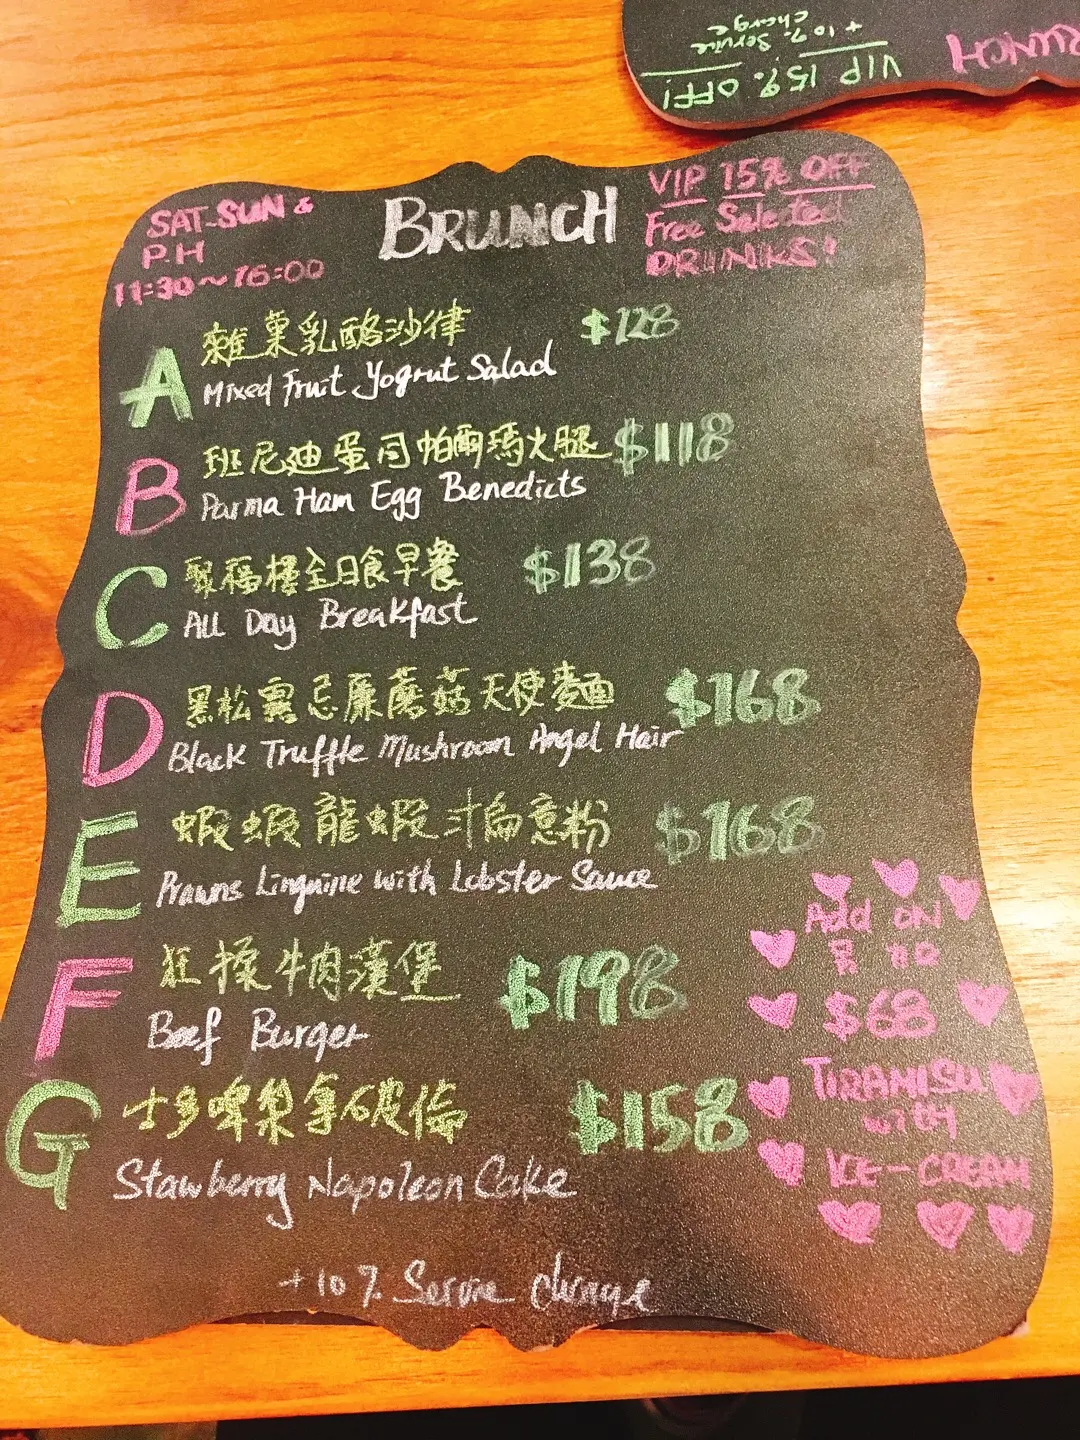 VIP 15% OFF!
+10% Service
charge
BRUNCH
SAT-SUN &
P.H
11:30~16:00
VIP 15% OFF
Free Selected
DRUNIKS!
A
雜菓乳酪沙律 $128
Mixed Fruit Yogrut Salad
B
班尼迪蛋司帕爾瑪火腿 $118
Parma Ham Egg Benedicts
C
聚福樓全日食早餐 $138
All Day Breakfast
D
黑松露忌廉蘑菇天使麵 $168
Black Truffle Mushroom Angel Hair
E
蝦蝦龍蝦汁扁意粉 $168
Prawns Linguine with Lobster Sauce
F
狂揉牛肉漢堡 $198
Beef Burger
G
士多啤梨拿破倫 $158
Stawberry Napoleon Cake
Add ON
$68
TIRAMISU
with
ICE-CREAM
+10% Service charge